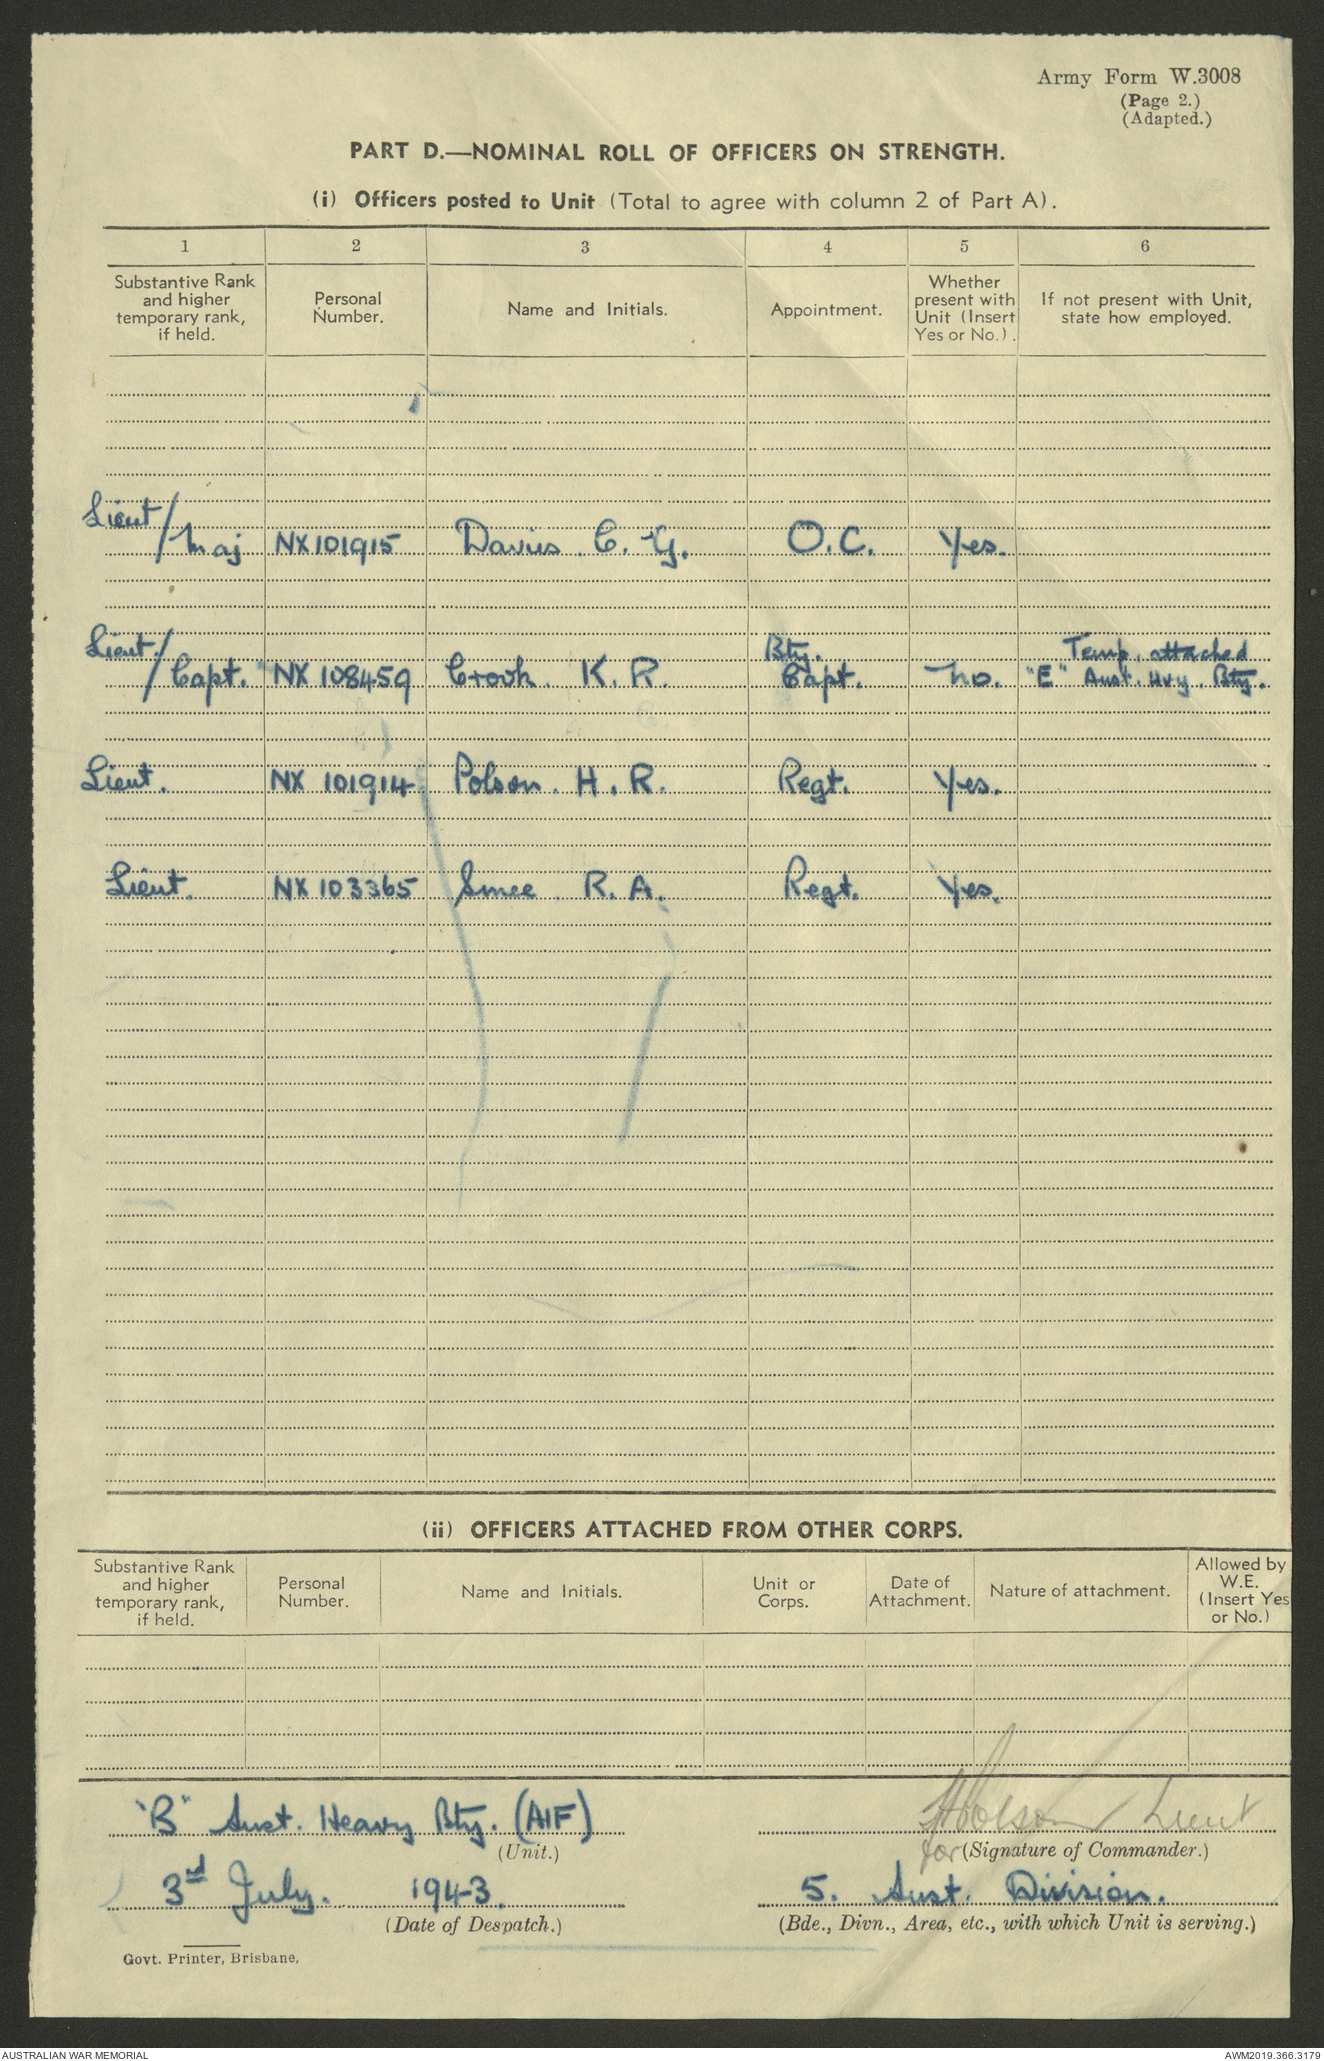 Army Form W.3008
(Page 2.)
(Adapted.)
PART D.—NOMINAL ROLL OF OFFICERS ON STRENGTH.
(i) Officers posted to Unit (Total to agree with column 2 of Part A).
1 2 3 4 5 6
Substantive Rank and higher temporary rank, if held.
Personal Number.
Name and Initials.
Appointment.
Whether present with Unit (Insert Yes or No.).
If not present with Unit, state how employed.
Lieut/Maj NX101915 Davies C. G. O.C. Yes.
Lieut/Capt. NX 108459 Crook K. R. Bty. Capt. No. Temp. attached "E" Aust. Hvy. Bty.
Lieut. NX 101914 Polson H. R. Regt. Yes.
Lieut. NX 103365 Smee R. A. Regt. Yes.
(ii) OFFICERS ATTACHED FROM OTHER CORPS.
Substantive Rank and higher temporary rank, if held.
Personal Number.
Name and Initials.
Unit or Corps.
Date of Attachment.
Nature of attachment.
Allowed by W.E. (Insert Yes or No.)
"B" Aust. Heavy Bty. (AIF)
(Unit.)
HPolson Lieut
for (Signature of Commander.)
3rd July. 1943.
(Date of Despatch.)
5. Aust. Division.
(Bde., Divn., Area, etc., with which Unit is serving.)
Govt. Printer, Brisbane.
AUSTRALIAN WAR MEMORIAL
AWM2019.366.3179